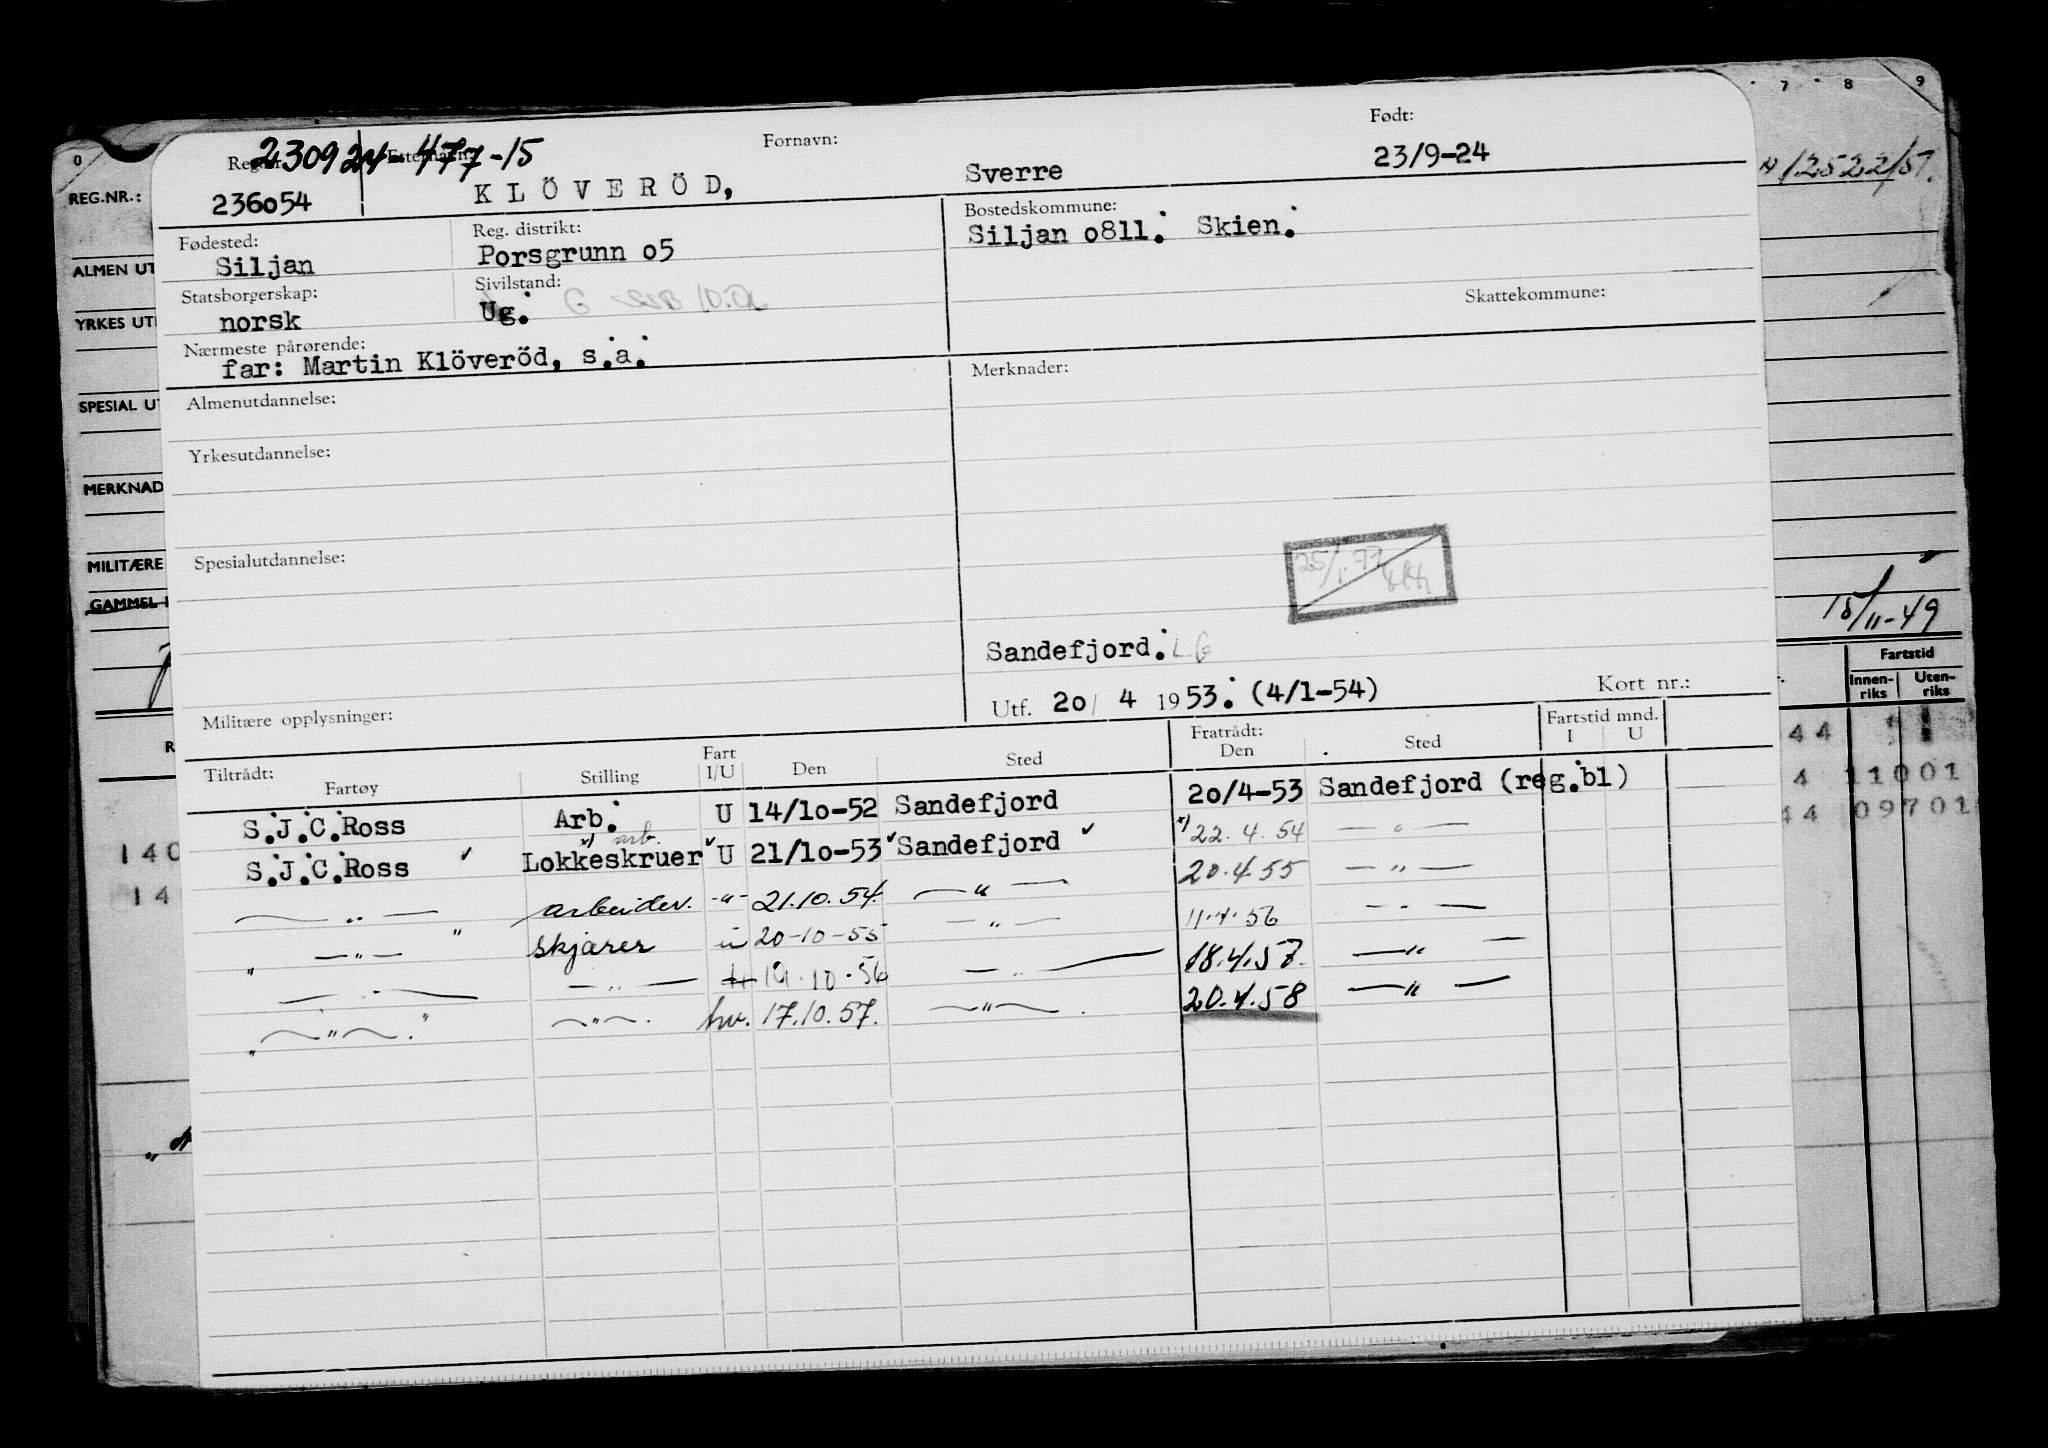 0 7 8 9
REG.NR.: 12522/51.
ALMEN UT
YRKES UT
SPESIAL UT
MERKNAD
MILITÆRE
GAMMEL
15/11-49
Fartstid
Innen-riks Uten-riks
44
4 11001
44 09701
140
14
Reg.nr. 230924-477-15 Etternavn: Fornavn: Født:
236054 KLÖVERÖD, Sverre 23/9-24
Fødested: Reg. distrikt: Bostedskommune:
Siljan Porsgrunn o5 Siljan o811. Skien.
Statsborgerskap: Sivilstand: Skattekommune:
norsk Ug.
Nærmeste pårørende:
far: Martin Klöveröd, s.a.
Almenutdannelse: Merknader:
Yrkesutdannelse:
Spesialutdannelse:
25/1.77
Sandefjord.
Militære opplysninger: Utf. 20/ 4 1953. (4/1-54) Kort nr.:
Tiltrådt: Fartøy Stilling Fart I/U Den Sted Fratrådt: Den Sted Fartstid mnd. I U
S.J.C.Ross Arb. U 14/10-52 Sandefjord 20/4-53 Sandefjord (reg.bl)
x) arb.
S.J.C.Ross ✓ Lokkeskruer ✓ U 21/10-53 ✓ Sandefjord ✓ x) 22.4.54 — " —
— " — arbeider. -"- 21.10.54. — " — 20.4.55 — " —
" — " — " skjærer 20-10-55 — " — 11.4.56 — " —
— " — — " — 19.10.56 — " — 18.4.57. — " —
" — " — " — " — hv. 17.10.57. — " — 20.4.58 — " —